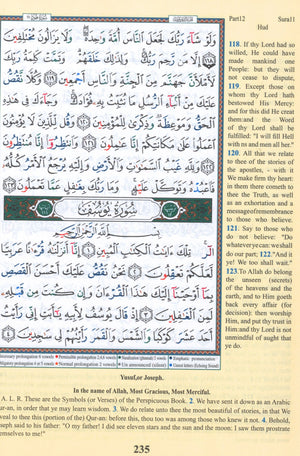 Part12 Sura11
Hud
وَلَوْ شَآءَ رَبُّكَ لَجَعَلَ ٱلنَّاسَ أُمَّةً وَٰحِدَةً وَلَا يَزَالُونَ مُخْتَلِفِينَ
١١٨ إِلَّا مَن رَّحِمَ رَبُّكَ وَلِذَٰلِكَ خَلَقَهُمْ وَتَمَّتْ كَلِمَةُ رَبِّكَ
لَأَمْلَأَنَّ جَهَنَّمَ مِنَ ٱلْجِنَّةِ وَٱلنَّاسِ أَجْمَعِينَ ١١٩ وَكُلًّا نَّقُصُّ
عَلَيْكَ مِنْ أَنۢبَآءِ ٱلرُّسُلِ مَا نُثَبِّتُ بِهِۦ فُؤَادَكَ وَجَآءَكَ فِى هَٰذِهِ
ٱلْحَقُّ وَمَوْعِظَةٌ وَذِكْرَىٰ لِلْمُؤْمِنِينَ ١٢٠ وَقُل لِّلَّذِينَ لَا يُؤْمِنُونَ
ٱعْمَلُوا۟ عَلَىٰ مَكَانَتِكُمْ إِنَّا عَٰمِلُونَ ١٢١ وَٱنتَظِرُوٓا۟ إِنَّا مُنتَظِرُونَ
١٢٢ وَلِلَّهِ غَيْبُ ٱلسَّمَٰوَٰتِ وَٱلْأَرْضِ وَإِلَيْهِ يُرْجَعُ ٱلْأَمْرُ كُلُّهُۥ
فَٱعْبُدْهُ وَتَوَكَّلْ عَلَيْهِ وَمَا رَبُّكَ بِغَٰفِلٍ عَمَّا تَعْمَلُونَ ١٢٣
سُورَةُ يُوسُفَ
بِسْمِ ٱللَّهِ ٱلرَّحْمَٰنِ ٱلرَّحِيمِ
الٓر تِلْكَ ءَايَٰتُ ٱلْكِتَٰبِ ٱلْمُبِينِ ١ إِنَّآ أَنزَلْنَٰهُ قُرْءَٰنًا عَرَبِيًّا
لَّعَلَّكُمْ تَعْقِلُونَ ٢ نَحْنُ نَقُصُّ عَلَيْكَ أَحْسَنَ ٱلْقَصَصِ
بِمَآ أَوْحَيْنَآ إِلَيْكَ هَٰذَا ٱلْقُرْءَانَ وَإِن كُنتَ مِن قَبْلِهِۦ
لَمِنَ ٱلْغَٰفِلِينَ ٣ إِذْ قَالَ يُوسُفُ لِأَبِيهِ يَٰٓأَبَتِ إِنِّى رَأَيْتُ
أَحَدَ عَشَرَ كَوْكَبًا وَٱلشَّمْسَ وَٱلْقَمَرَ رَأَيْتُهُمْ لِى سَٰجِدِينَ ٤
118. If thy Lord had so
willed, He could have
made mankind one
People: but they will
not cease to dispute,
119. Except those on
whom thy Lord hath
bestowed His Mercy:
and for this did He creat
them:and the Word
of thy Lord shall be
fulfilled: "I will fill Hell
with ns and men all her."
120. All that we relate
to thee of the stories of
the apostles, - with it
We make firm thy heart:
in them there cometh to
thee the Truth, as well
as an exhortation and a
messageofremembrance
to those who believe.
121. Say to those who
do not believe: "Do
whatever ye can: we shall
do our part; 122."And w
ye! We too shall wait."
123.To Allah do belong
the unseen (secrets)
of the heavens and the
earth, and to Him goeth
back every affair (for
decision): then worship
Him, and put thy trust in
Him:and thy Lord is not
unmindful of aught that
ye do.
Yusuf,or Joseph.
In the name of Allah, Most Gracious, Most Merciful.
A. L. R. These are the Symbols (or Verses) of the Perspicuous Book. 2. We have sent it down as an Arabic
ur-an, in order that ye may learn wisdom. 3. We do relate unto thee the most beautiful of stories, in that We
veal to thee this (portion of the) Qur-an: before this, thou too was among those who knew it not. 4. Behold,
oseph said to his father: "O my father! I did see eleven stars and the sun and the moon: I saw them prostrate
emselves to me!"
235